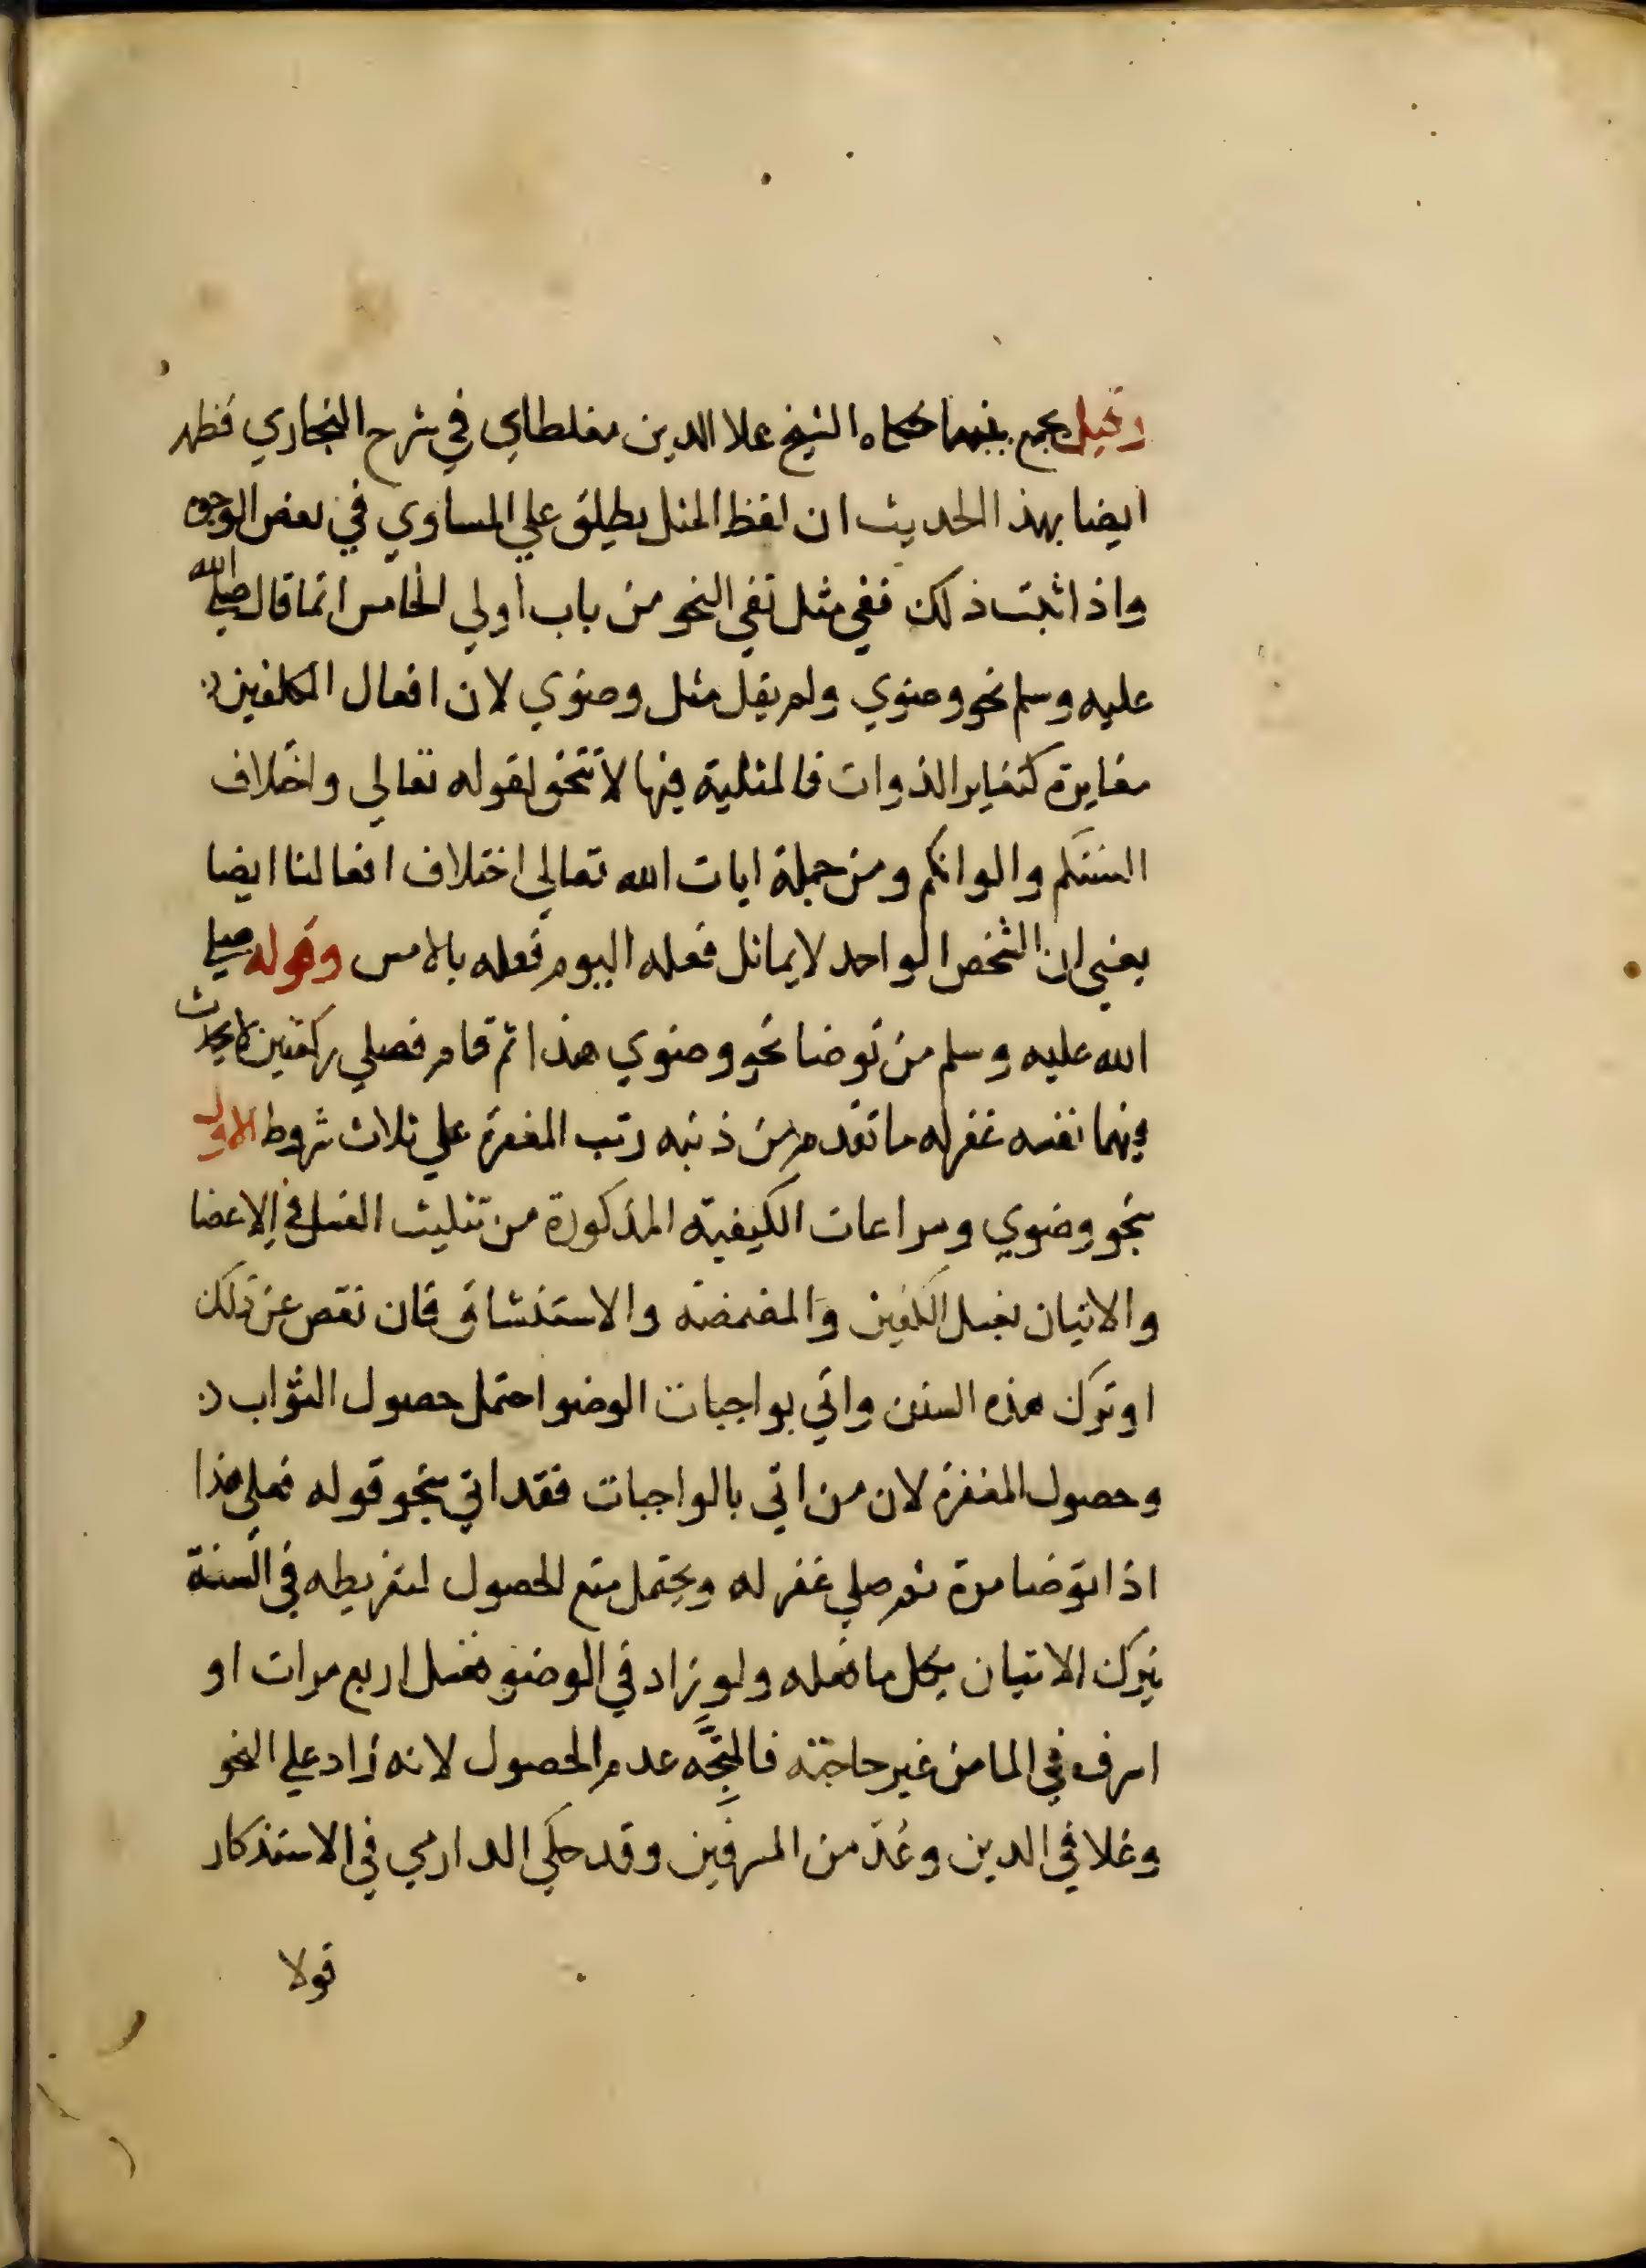 وقيل يجمع بينهما حكاه الشيخ علا الدين مغلطاي في شرح البخاري فظهر
ايضا بهذا الحديث ان لفظ المثل يطلق علي المساوي في بعض الوجوه
واذا ثبت ذلك ففي مثل نفي النحو من باب اولي الخامس انما قال صلي الله
عليه وسلم نحو وضوي ولم يقل مثل وضوي لان افعال المكلفين
مغايرة كتغاير الذوات فالمثلية فيها لا تتحقق لقوله تعالي واختلاف
السنتكم والوانكم ومن جملة ايات الله تعالي اختلاف افعالنا ايضا
يعني ان الشخص الواحد لا يماثل فعله اليوم فعله بالامس وقوله صلي
الله عليه وسلم من توضا نحو وضوي هذا ثم قام فصلي ركعتين لا يحدث
فيهما نفسه غفر له ما تقدم من ذنبه رتب المغفرة علي ثلاث شروط الاول
نحو وضوي ومراعات الكيفية المذكورة من تثليث الغسل في الاعضا
والاتيان بغسل الكفين والمضمضة والاستنشاق فان نقص عن ذلك
او ترك هذه السنن واتي بواجبات الوضو احتمل حصول الثواب
وحصول المغفرة لان من اتي بالواجبات فقد اتي بنحو قوله فعلي هذا
اذا توضا مرة ثم صلي غفر له ويحتمل منع الحصول لتفريطه في السنة
بترك الاتيان بكل ما فعله ولو زاد في الوضو فغسل اربع مرات او
اسرف في الما من غير حاجة فالمتجه عدم الحصول لانه زاد علي النحو
وغلا في الدين وعد من المسرفين وقد حكي الدارمي في الاستذكار
قولا